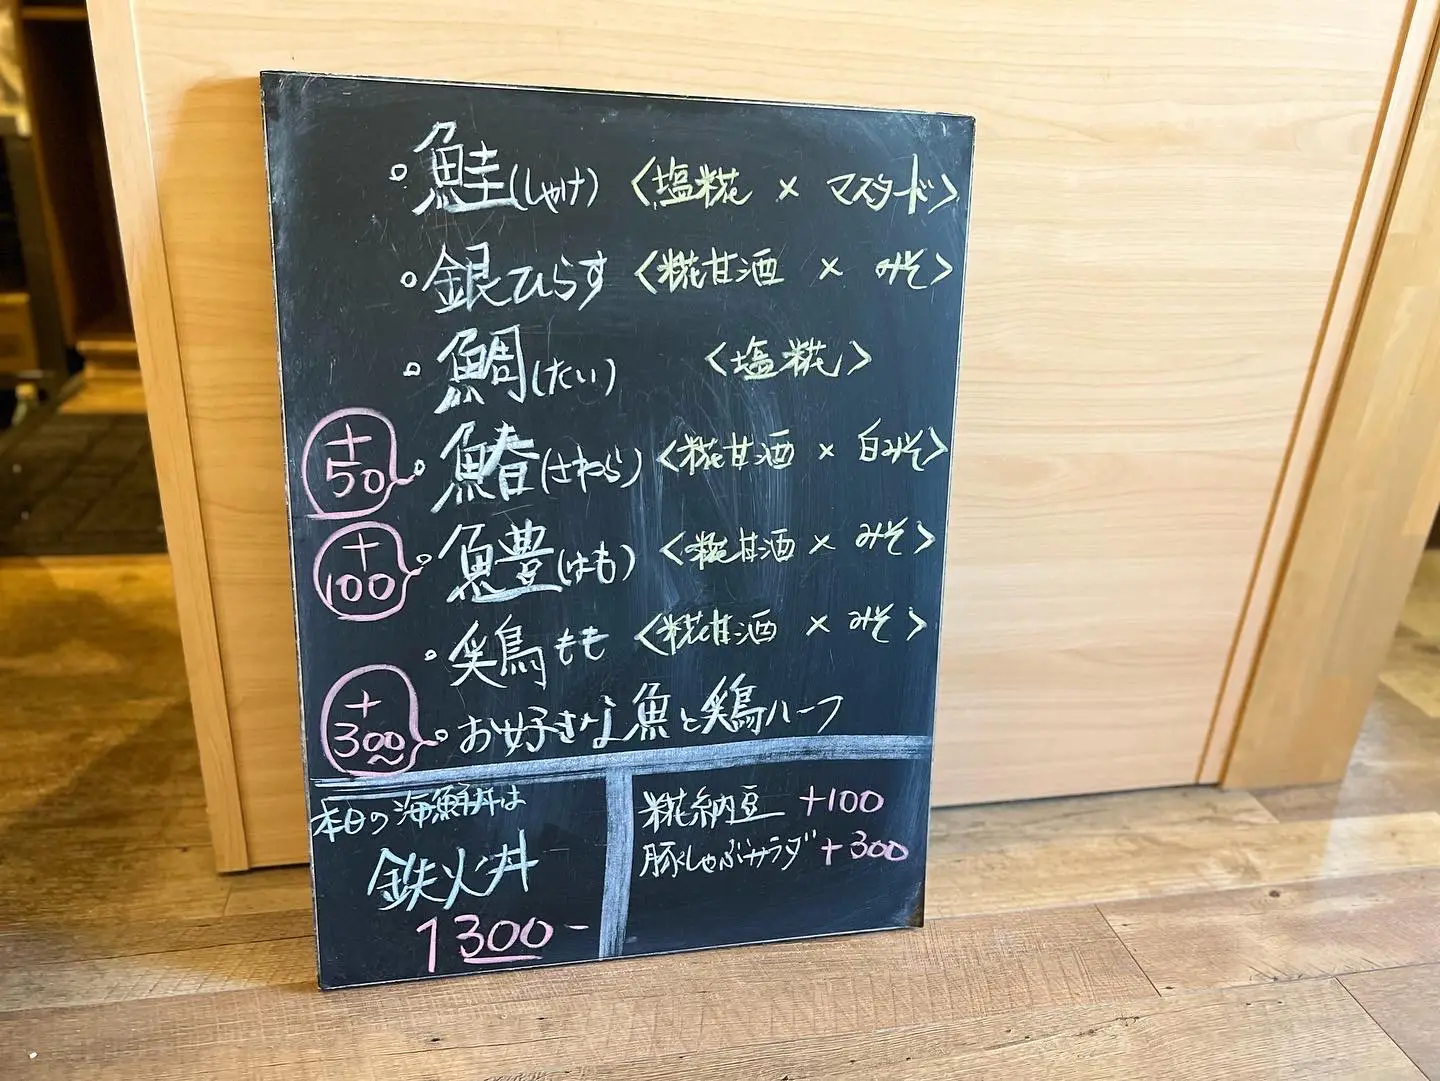 。鮭(しゃけ) 〈塩糀 × マスタード〉
。銀ひらす 〈糀甘酒 × みそ〉
。鯛(たい) 〈塩糀〉
+50 。鰆(さわら) 〈糀甘酒 × 白みそ〉
+100 。鱧(はも) 〈糀甘酒 × みそ〉
。鶏もも 〈糀甘酒 × みそ〉
+300 。お好きな魚と鶏ハーフ
本日の海鮮丼は
鉄火丼
1300-
糀納豆 +100
豚しゃぶサラダ +300